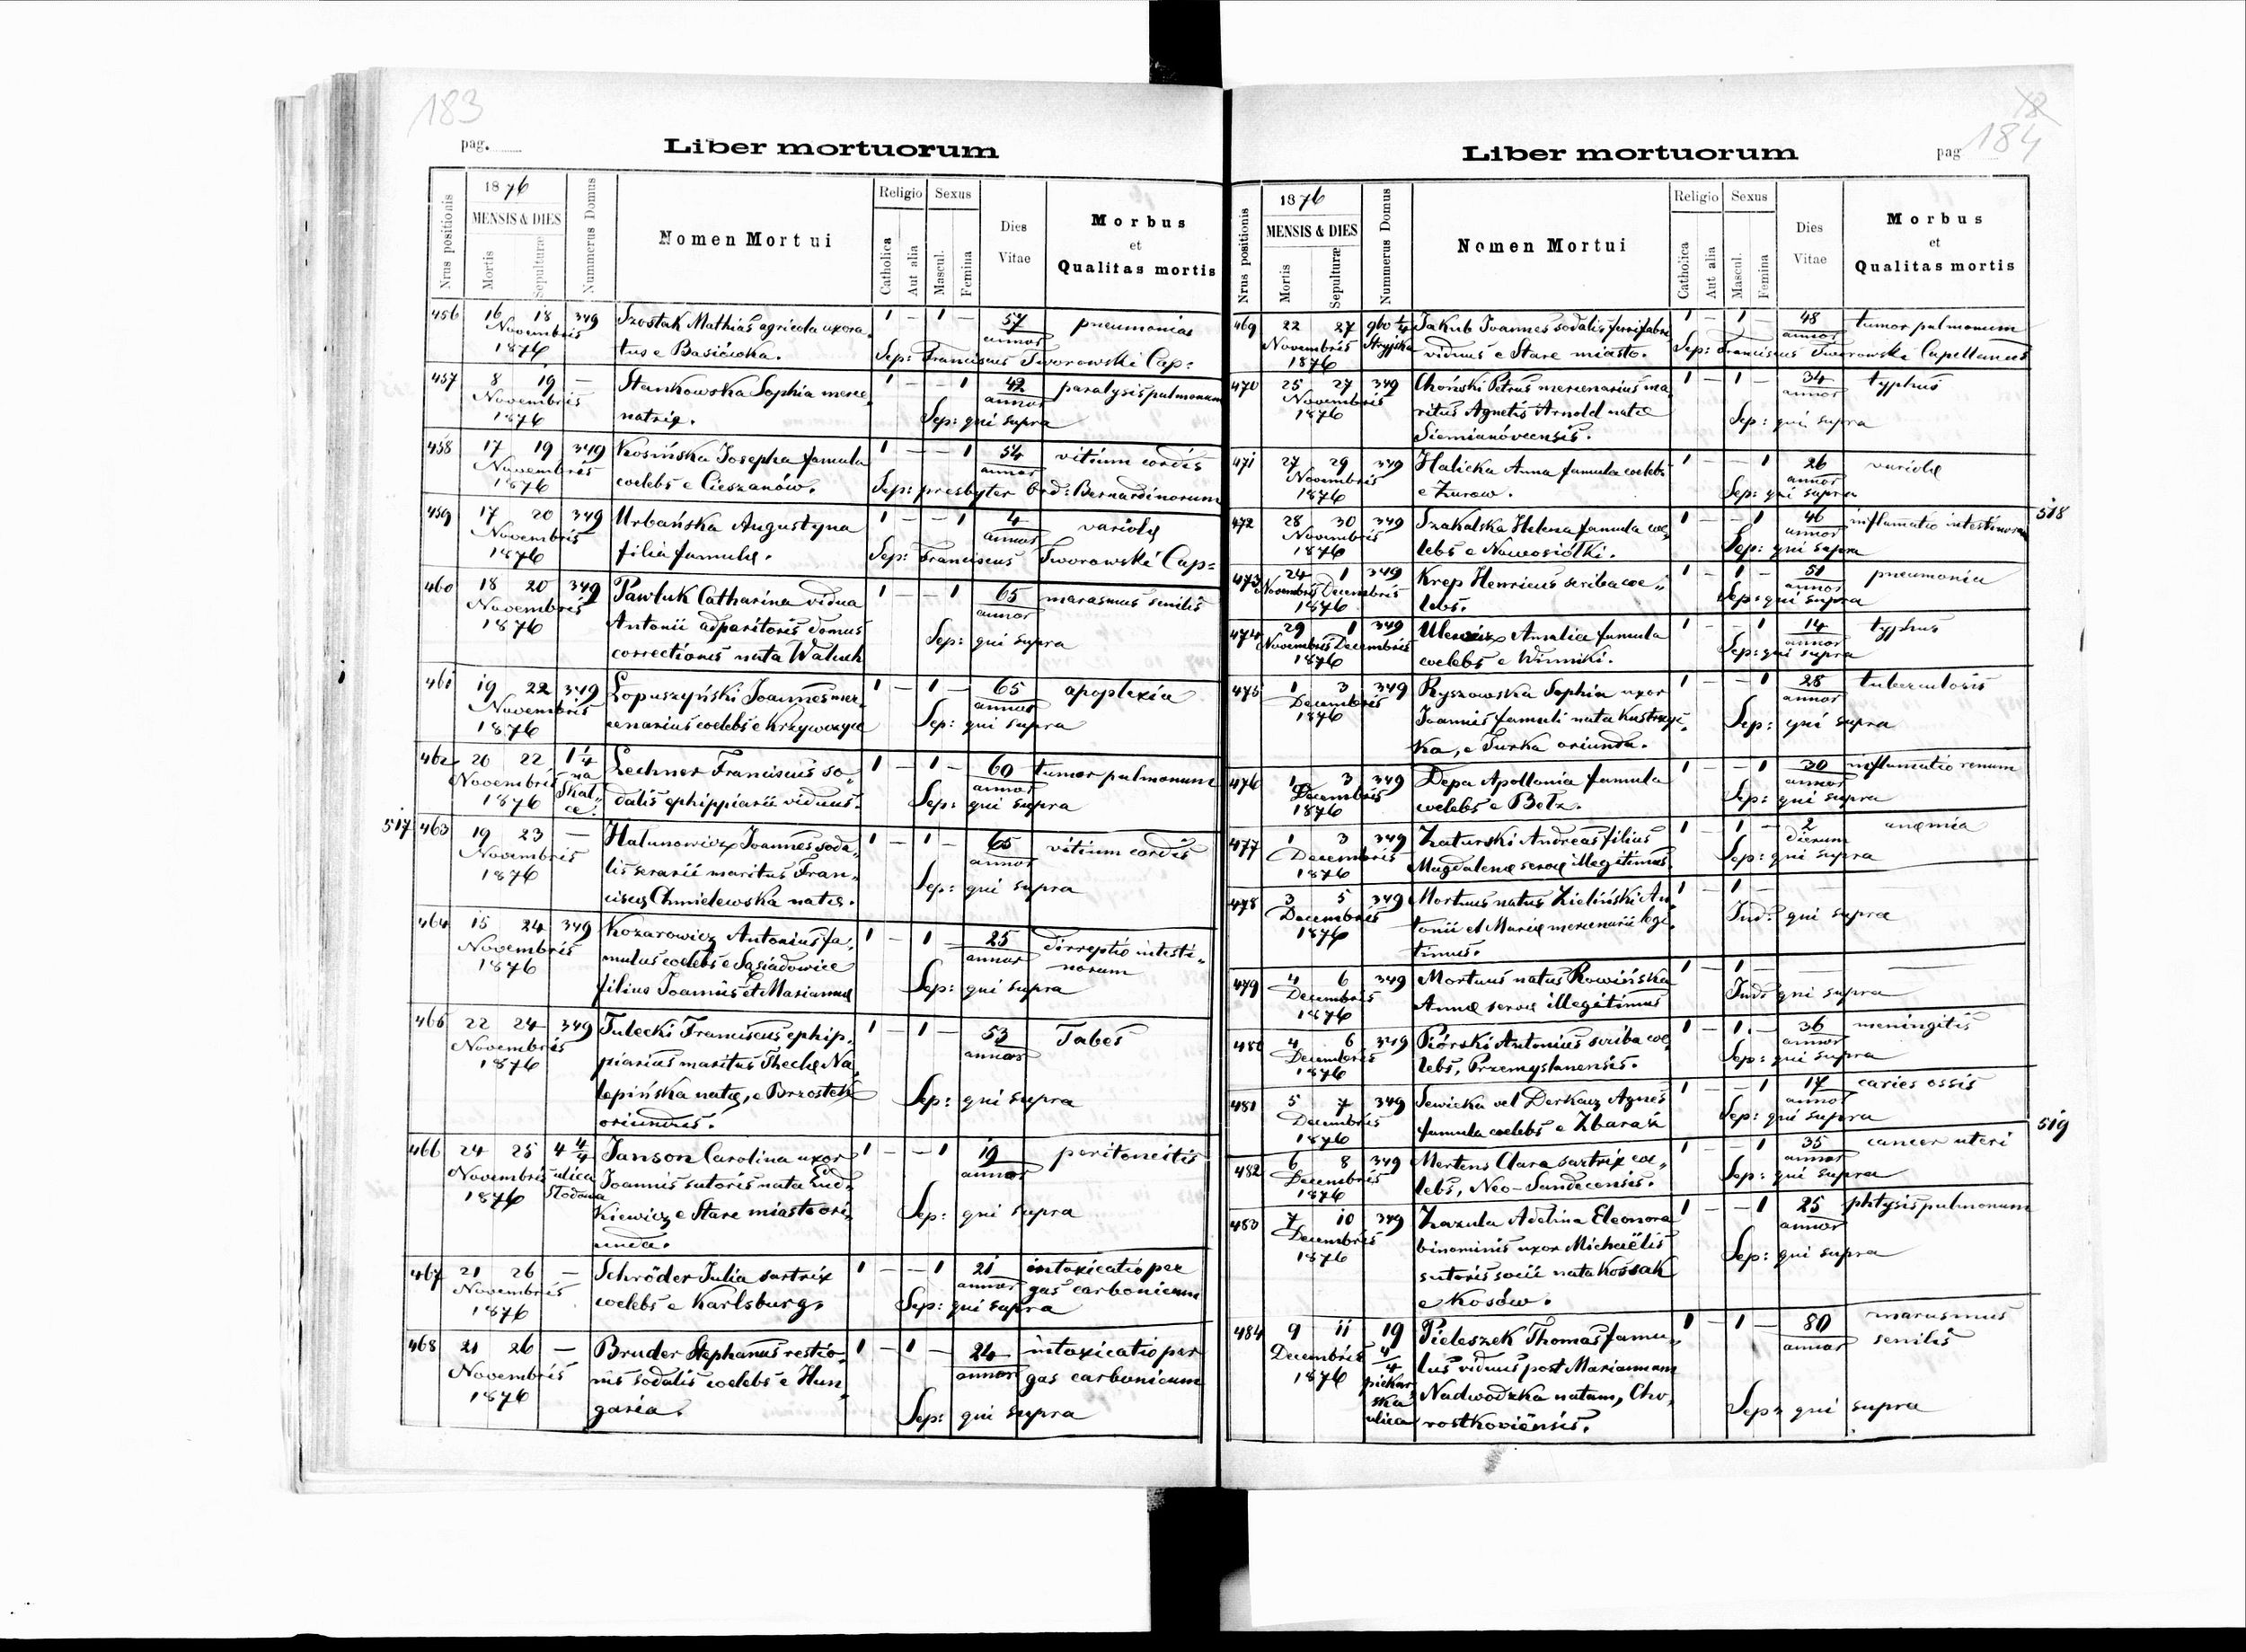 183
pag.
Liber mortuorum
Nrus positionis
1876
MENSIS & DIES
Mortis
Sepulturæ
Nummerus Domus
Nomen Mortui
Religio
Catholica
Aut alia
Sexus
Mascul.
Femina
Dies
Vitae
Morbus
et
Qualitas mortis
456 16 18 349 Szostak Mathias agricola uxora- 1 — 1 — 57 pneumonias
Novembris tus e Basiówka. annor
1876 Sep: Franciscus Tworowski Cap:
457 8 19 — Stankowska Sophia merce- 1 — — 1 42 paralysis pulmonum
Novembris natrix. annor
1876 Sep: qui supra
458 17 19 349 Kosińska Josepha famula 1 — — 1 54 vitium cordis
Novembris coelebs e Cieszanów. annor
1876 Sep: presbyter Ord: Bernardinorum
459 17 20 349 Urbańska Augustyna 1 — — 1 4 variolæ
Novembris filia famulæ. annor
1876 Sep: Franciscus Tworowski Cap:
460 18 20 349 Pawluk Catharina vidua 1 — — 1 65 marasmus senilis
Novembris Antonii adparitoris domus annor
1876 correctionis nata Waluch Sep: qui supra
461 19 22 349 Łopuszyński Joannes mer- 1 — 1 — 65 apoplexia
Novembris cenarius coelebs e Krzywczyce annor
1876 Sep: qui supra
462 20 22 1 1/4 Lechner Franciscus so- 1 — 1 — 60 tumor pulmonum
Novembris na Skal- dalis ephippiarii viduus. annor
1876 ce. Sep: qui supra
517 463 19 23 — Hatunowicz Joannes soda- 1 — 1 — 65 vitium cordis
Novembris lis serarii maritus Fran- annor
1876 ciscæ Chmielewska natæ. Sep: qui supra
464 15 24 349 Kozarowicz Antonius fa- 1 — 1 — 25 dirreptio intesti-
Novembris mulus coelebs e Sąsiadowice annor norum
1876 filius Joannis et Mariannæ Sep: qui supra
465 22 24 349 Tulecki Franciscus ephip- 1 — 1 — 53 Tabes
Novembris piarius maritus Theclæ Na- annor
1876 lepińska natæ, e Brzostek Sep: qui supra
oriundus.
466 24 25 4 4/4 Janson Carolina uxor 1 — — 1 19 peritoneitis
Novembris ulica Joannis sutoris nata Lud- annor
1876 Stodowa kiewicz e Stare miasto ori- Sep: qui supra
unda.
467 21 26 — Schröder Julia sartrix 1 — — 1 21 intoxicatio per
Novembris coelebs e Karlsburg. annor gas carbonicum
1876 Sep: qui supra
468 21 26 — Bruder Stephanus restio- 1 — 1 — 24 intoxicatio per
Novembris nis sodalis coelebs e Hun- annor gas carbonicum
1876 garia. Sep: qui supra
184
pag
Liber mortuorum
Nrus positionis
1876
MENSIS & DIES
Mortis
Sepulturæ
Nummerus Domus
Nomen Mortui
Religio
Catholica
Aut alia
Sexus
Mascul.
Femina
Dies
Vitae
Morbus
et
Qualitas mortis
469 22 27 960 1/4 Jakub Joannes sodalis ferrifabri 1 — 1 — 48 tumor pulmonum
Novembris Stryjska viduus e Stare miasto. annor
1876 Sep: Franciscus Tworowski Capellanus
470 25 27 349 Choński Petrus mercenarius ma- 1 — 1 — 34 typhus
Novembris ritus Agnetis Arnold natæ annor
1876 Siemianóvcensis. Sep: qui supra
471 27 29 349 Halicka Anna famula coelebs 1 — — 1 26 variolæ
Novembris e Zurow. annor
1876 Sep: qui supra
472 28 30 349 Szakalska Helena famula coe- 1 — — 1 46 inflamatio intestinorum 518
Novembris lebs e Nowosiółki. annor
1876 Sep: qui supra
473 24 1 349 Krep Henricus scriba coe- 1 — 1 — 51 pneumonia
Novembris Decembris lebs. annor
1876 Sep: qui supra
474 29 1 349 Amalia famula 1 — — 1 14 typhus
Novembris Decembris coelebs e Winniki. annor
1876 Sep: qui supra
475 1 3 349 Ryszowska Sophia uxor 1 — — 1 28 tuberculosis
Decembris Joannis famuli nata Kustrzyc- annor
1876 ka, e Turka oriunda. Sep: qui supra
476 1 3 349 Depa Apollonia famula 1 — — 1 30 inflamatio renum
Decembris coelebs e Bełz. annor
1876 Sep: qui supra
477 1 3 349 Zaturski Andreas filius 1 — 1 — 2 anæmia
Decembris Magdalenæ servæ illegitimus. dierum
1876 Sep: qui supra
478 3 5 349 Mortuus natus Zieliński An- 1 — 1 — — —
Decembris tonii et Mariæ mercenarii legi- Ind: qui supra
1876 timus.
479 4 6 349 Mortuus natus Rowińska 1 — 1 — — —
Decembris Annæ servæ illegitimus Ind: qui supra
1876
480 4 6 349 Piórski Antonius scriba coe- 1 — 1 — 36 meningitis
Decembris lebs, Przemyslanensis. annor
1876 Sep: qui supra
481 5 7 349 Sewicka vel Derkacz Agnes 1 — — 1 17 caries ossis
Decembris famula coelebs e Zbaraż annor
1876 Sep: qui supra 519
482 6 8 349 Mertens Clara sartrix coe- 1 — — 1 35 cancer uteri
Decembris lebs, Neo-Sandecensis. annor
1876 Sep: qui supra
483 7 10 349 Zazula Adelina Eleonora 1 — — 1 25 phtysis pulmonum
Decembris binominis uxor Michaëlis annor
1876 sutoris socii nata Kossak Sep: qui supra
e Kosów.
484 9 11 19 Pieleszek Thomas famu- 1 — 1 — 80 marasmus
Decembris 4/4 lus viduus post Mariannam annor senilis
1876 piekar- Nadwodzka natam, Cho-
ska
ulica rostkoviënsis. Sep: qui supra